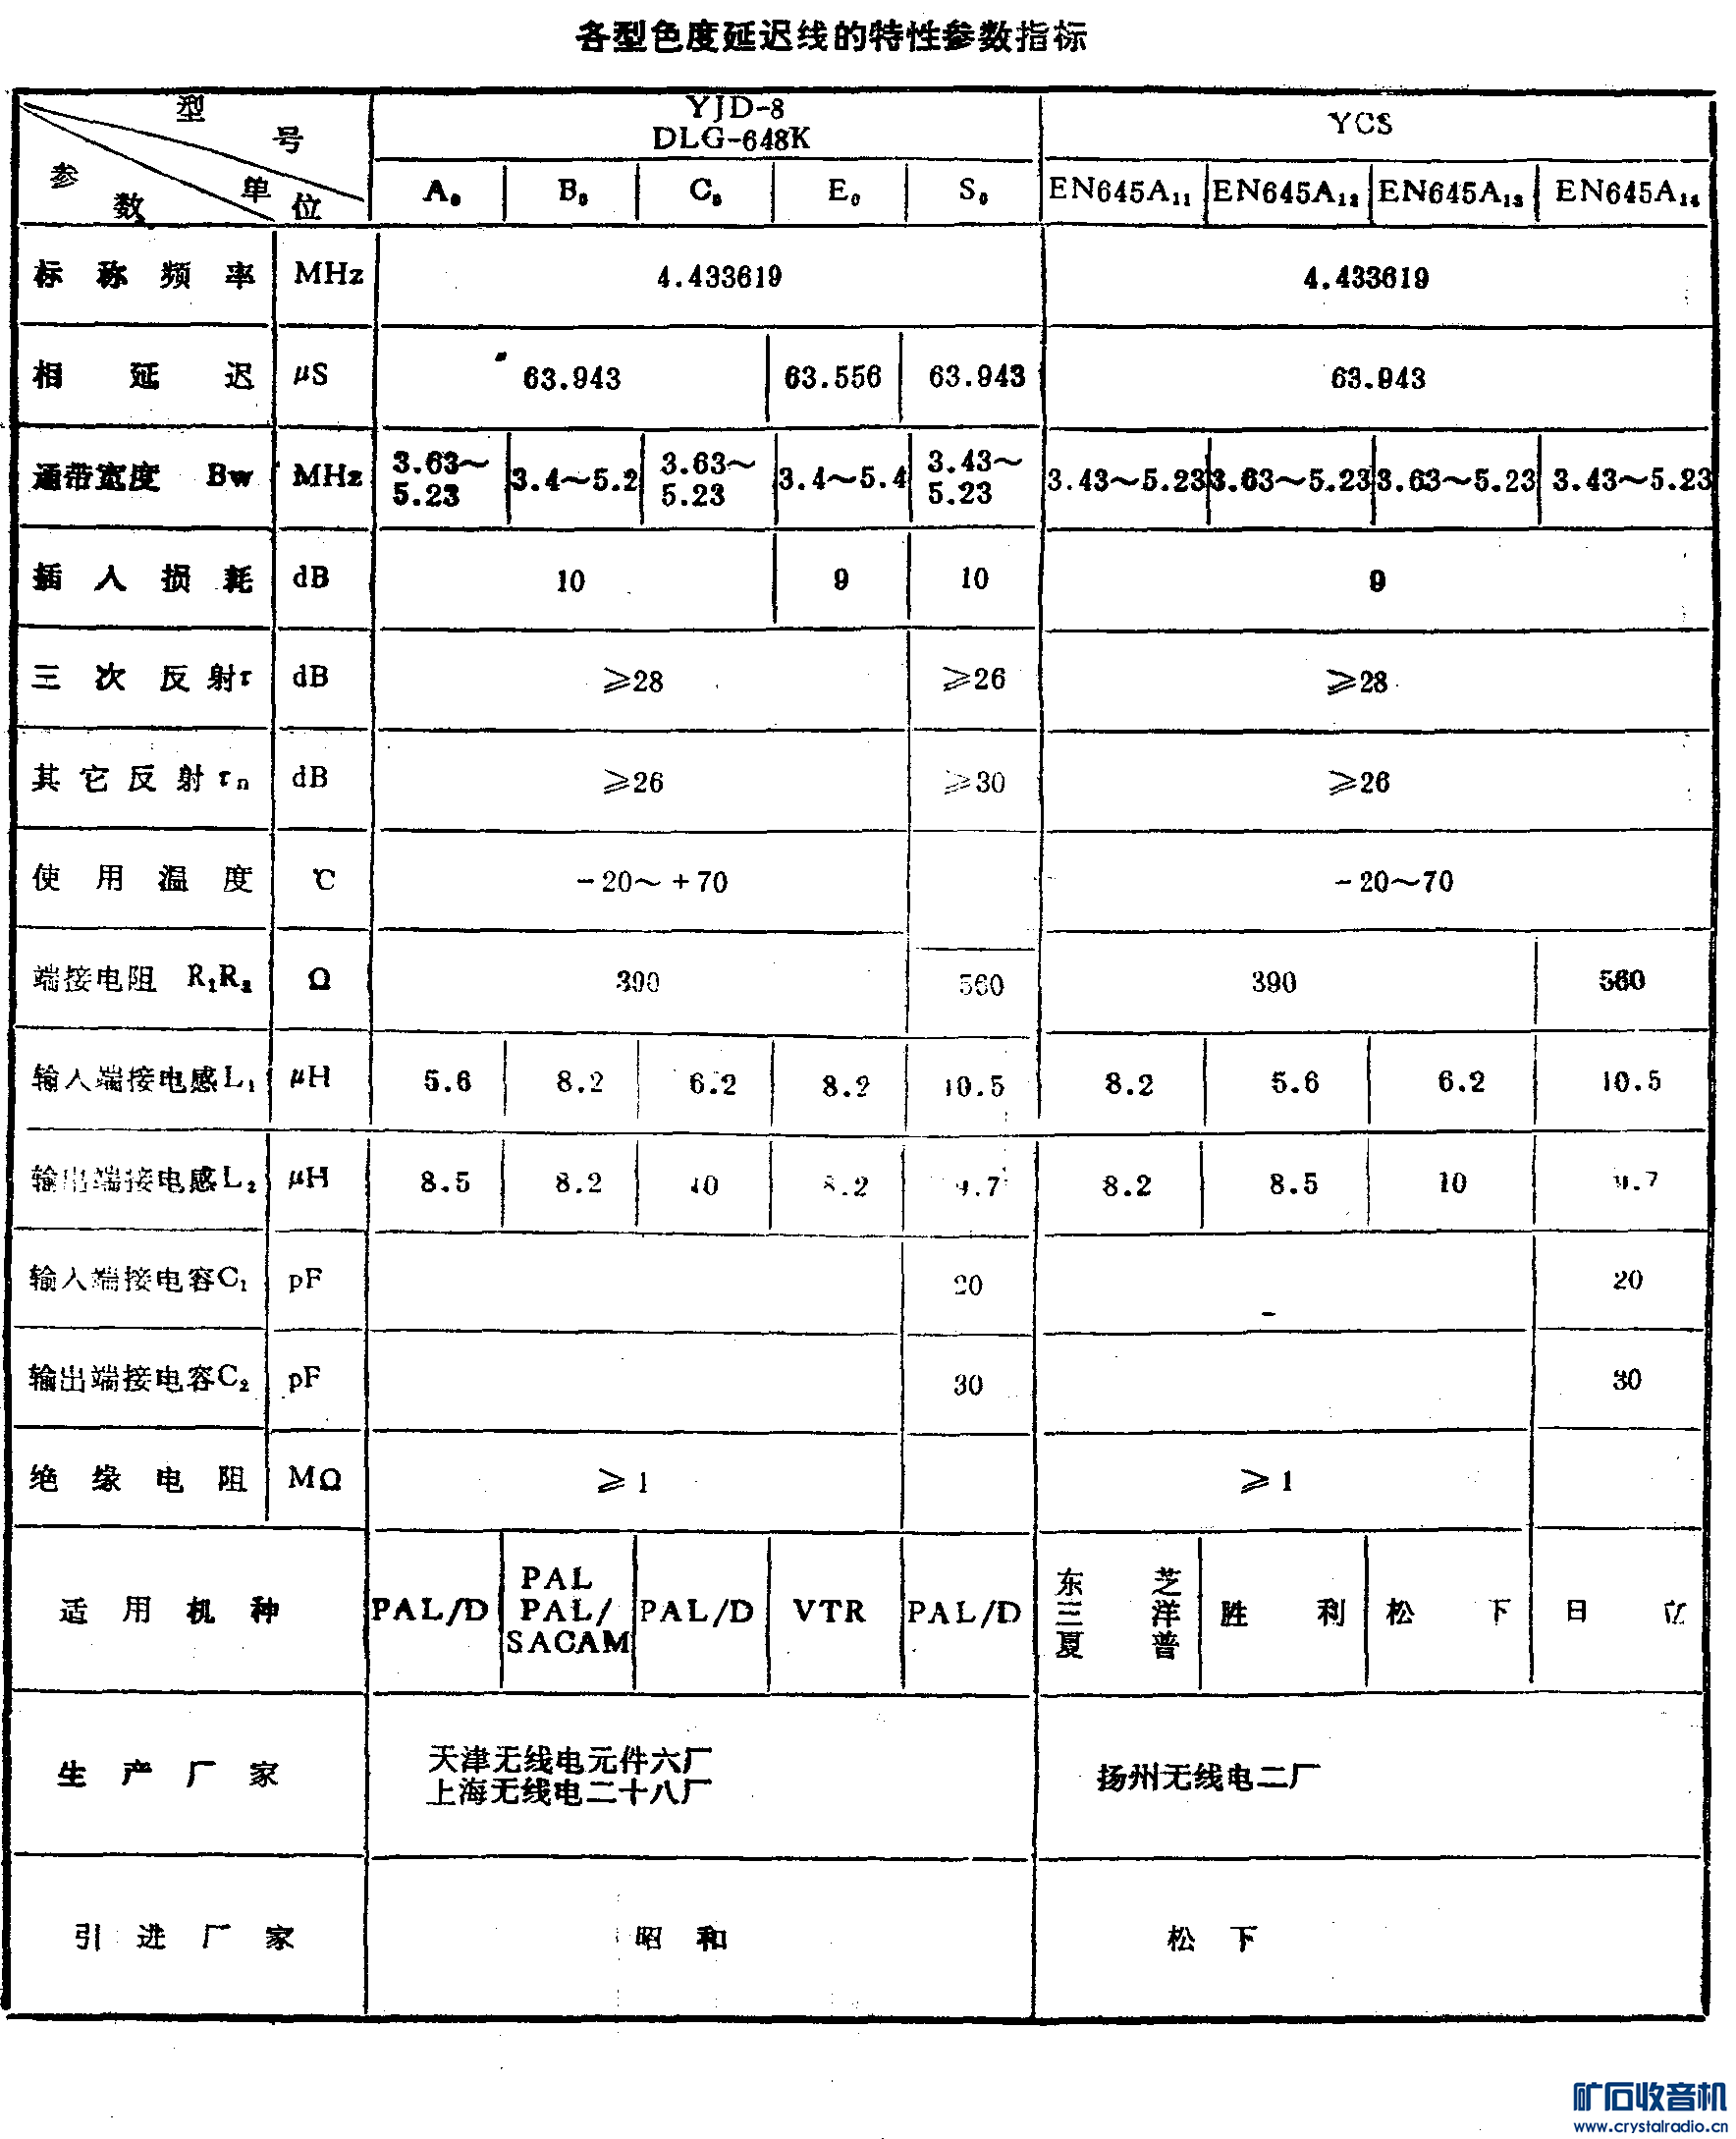 各型色度延迟线的特性参数指标
型号 YJD-8 YCS
DLG-648K
参数 单位 A₀ B₀ C₀ E₀ S₀ EN645A₁₁ EN645A₁₂ EN645A₁₃ EN645A₁₄
标称频率 MHz 4.433619 4.433619
相延迟 μS 63.943 63.556 63.943 63.943
通带宽度 Bw MHz 3.63～5.23 3.4～5.2 3.63～5.23 3.4～5.4 3.43～5.23 3.43～5.23 3.63～5.23 3.63～5.23 3.43～5.23
插入损耗 dB 10 9 10 9
三次反射τ dB ≥28 ≥26 ≥28
其它反射τn dB ≥26 ≥30 ≥26
使用温度 ℃ -20～+70 -20～70
端接电阻 R₁R₂ Ω 390 560 390 560
输入端接电感L₁ μH 5.6 8.2 6.2 8.2 10.5 8.2 5.6 6.2 10.5
输出端接电感L₂ μH 8.5 8.2 10 8.2 9.7 8.2 8.5 10 9.7
输入端接电容C₁ pF 20 - 20
输出端接电容C₂ pF 30 30
绝缘电阻 MΩ ≥1 ≥1
适用机种 PAL/D PAL PAL/SACAM PAL/D VTR PAL/D 东芝 三洋 夏普 胜利 松下 日立
生产厂家 天津无线电元件六厂 扬州无线电二厂
上海无线电二十八厂
引进厂家 昭和 松下
矿石收音机
www.crystalradio.cn